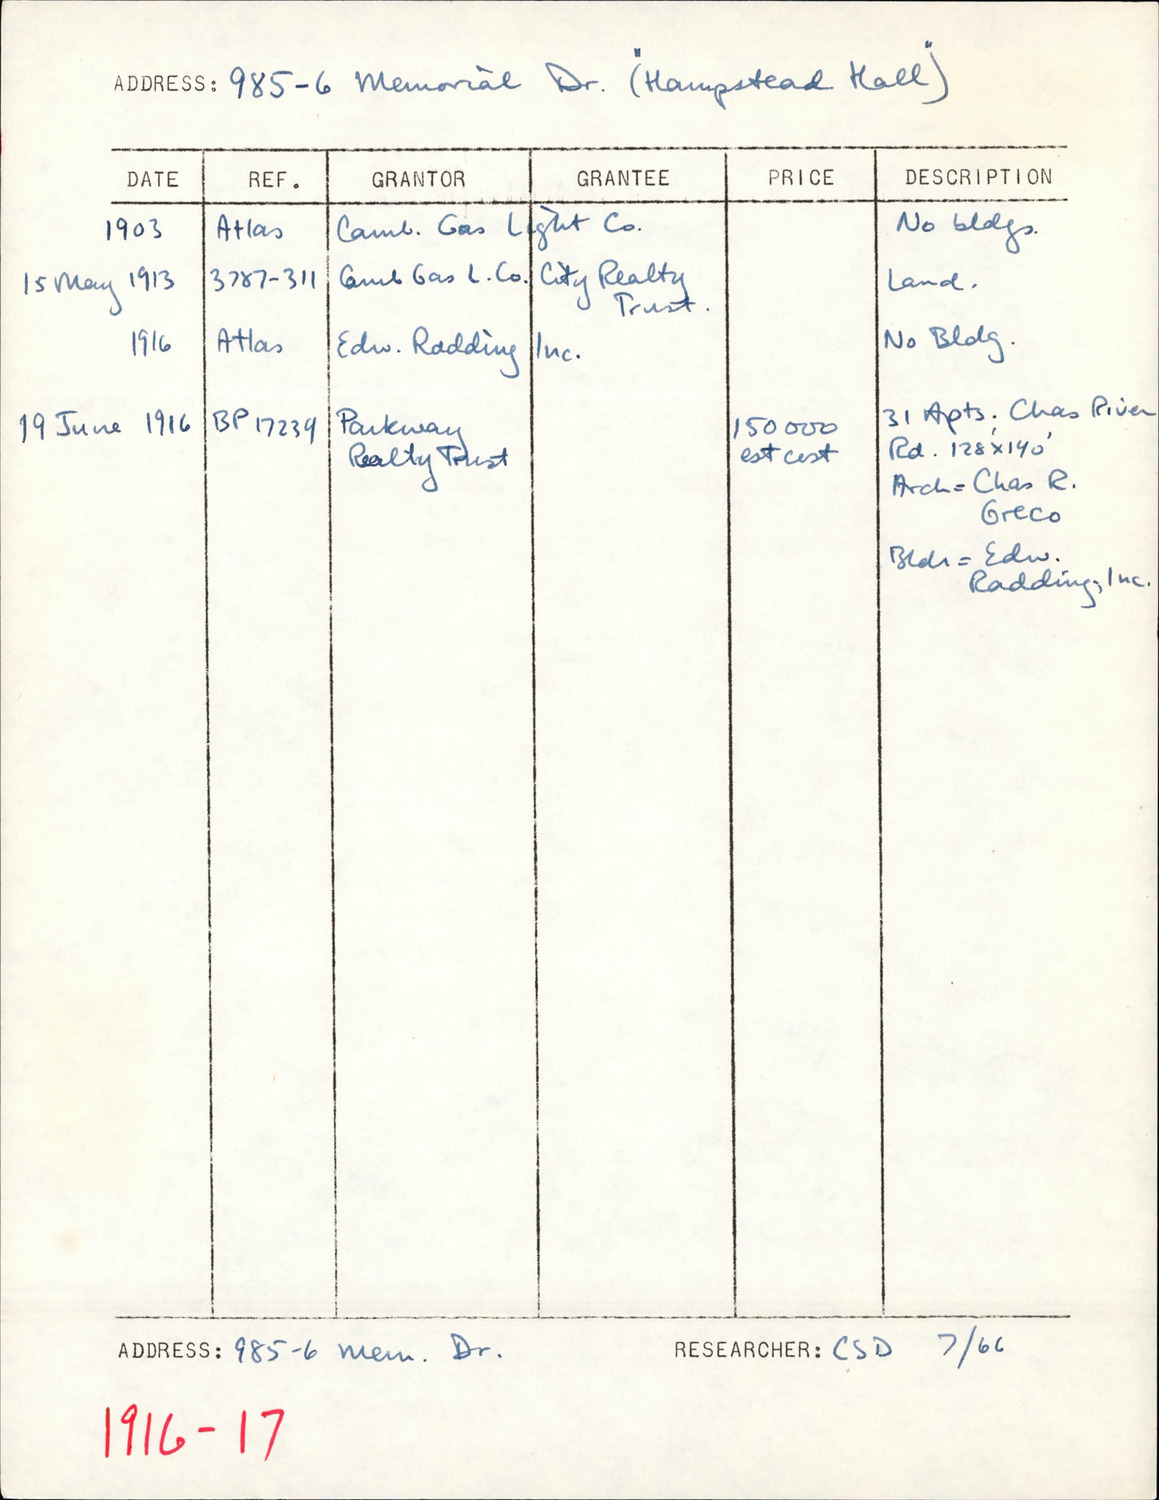 ADDRESS: 985-6 Memorial Dr. ("Hampstead Hall")
DATE REF. GRANTOR GRANTEE PRICE DESCRIPTION
1903 Atlas Camb. Gas Light Co. No bldgs.
15 May 1913 3787-311 Camb Gas L. Co. City Realty Land.
Trust.
1916 Atlas Edw. Radding Inc. No Bldg.
19 June 1916 BP 17239 Parkway 150 000 31 Apts; Chas River
Realty Trust est cost Rd. 128'x140'
Arch= Chas R.
Greco
Bldr = Edw.
Radding, Inc.
ADDRESS: 985-6 Mem. Dr. RESEARCHER: CSD 7/66
1916-17